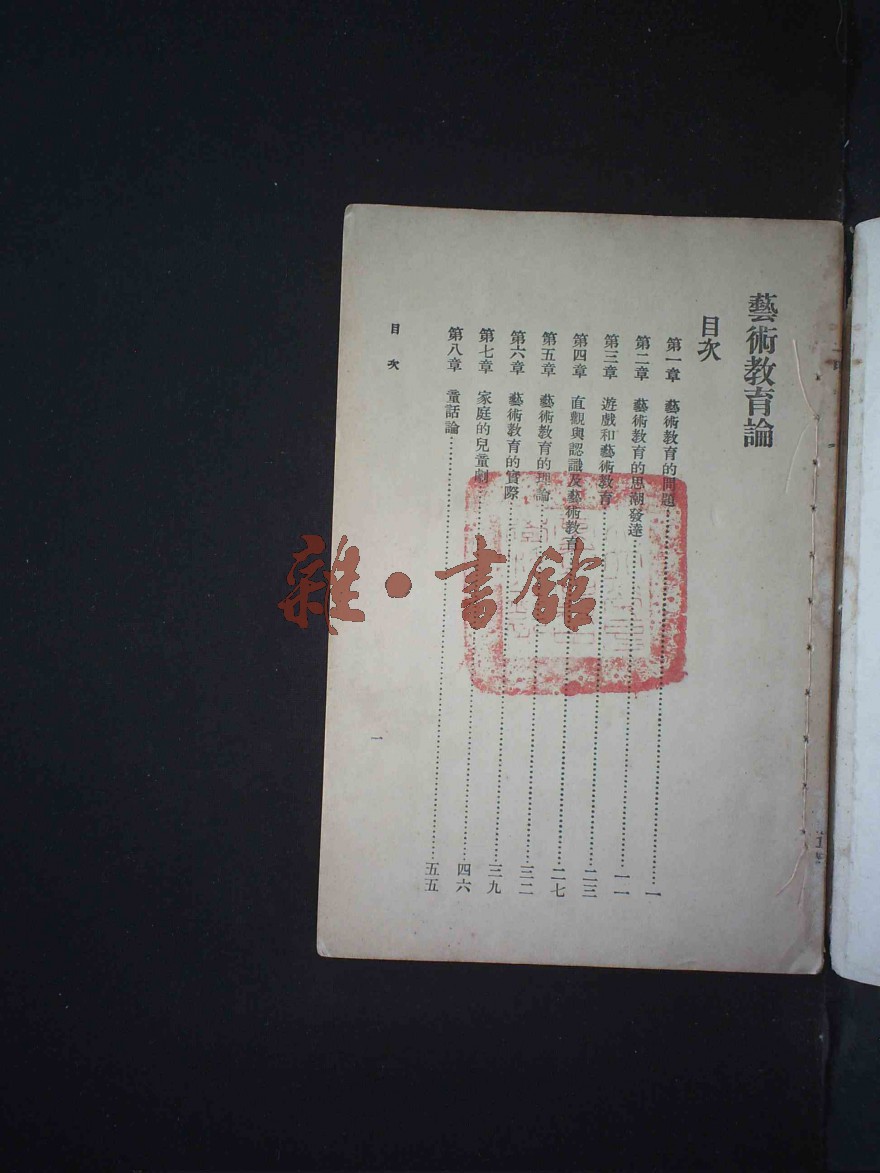 藝術教育論
目次
第一章 藝術教育的問題……一
第二章 藝術教育的思潮發達……一一
第三章 遊戲和藝術教育……二三
第四章 直觀與認識及藝術教育……二七
第五章 藝術教育的理論……三二
第六章 藝術教育的實際……三九
第七章 家庭的兒童劇……四六
第八章 童話論……五五
目次
一
雜·書館